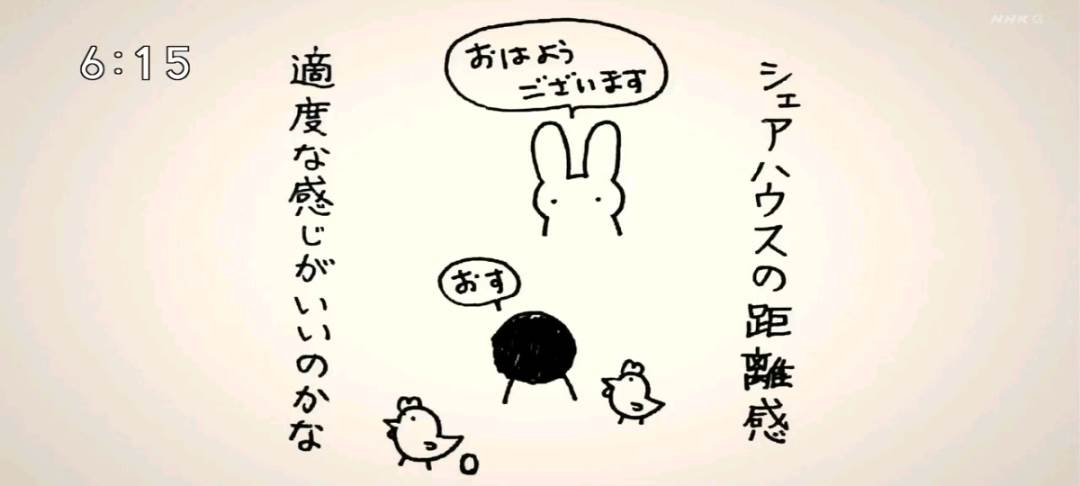 6:15
NHK G
シェアハウスの距離感
おはよう
ございます
おす
適度な感じがいいのかな